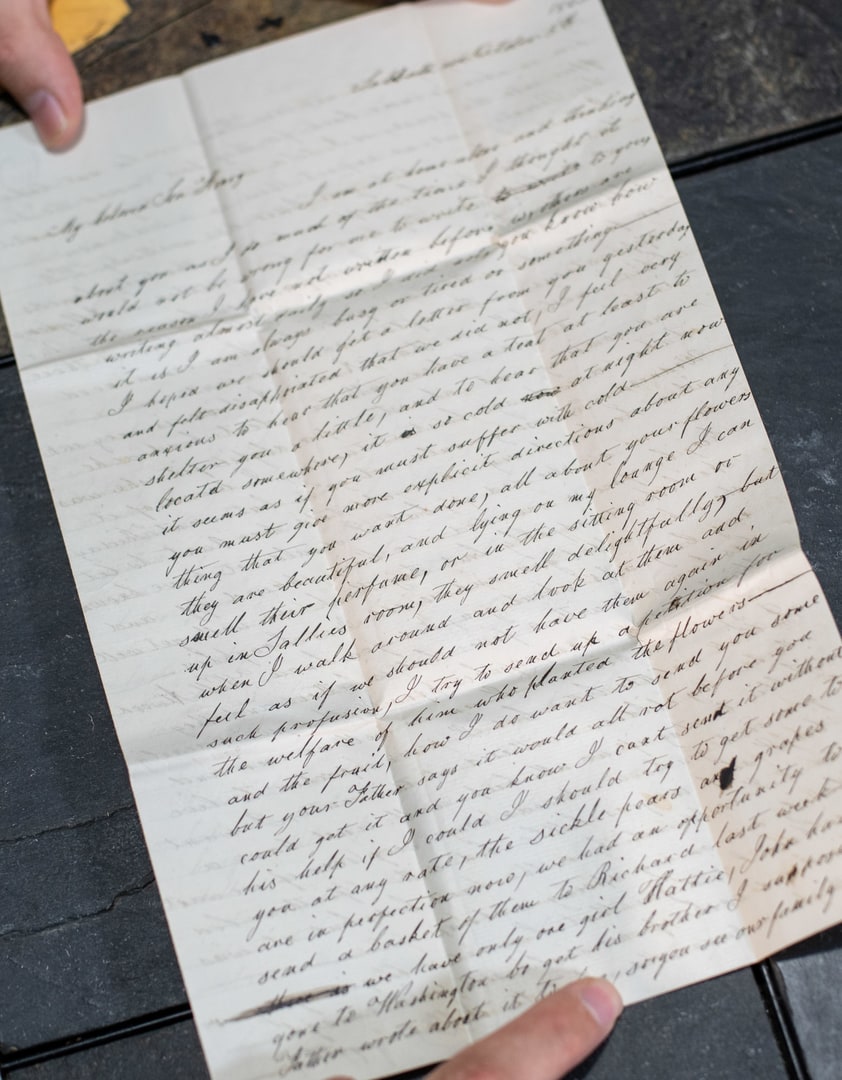 Sabbath eve October 5th
My beloved Son
I am at home alone and thinking
about you as I do much of the time, I thought it
would not be wrong for me to write to you
the reason I have not written before others are
writing almost daily so I did not, you know how
it is I am always busy or tired or something
I hoped we should get a letter from you yesterday
and felt disappointed that we did not, I feel very
anxious to hear that you have a tent at least to
shelter you a little, and to hear that you are
locatd somewhere, it is so cold now at night now
it seems as if you must suffer with cold
you must give more explicit directions about any
thing that you want done, all about your flowers
they are beautiful, and lying on my lounge I can
smell their perfume, or in the sitting room or
up in Sallies room, they smell delightfully, but
when I walk around and look at them and,
feel as if we should not have them again in
such profusion, I try to send up a petition for
the welfare of him who planted the flowers
and the fruit, how I do want to send you some
but your Father says it would all rot before you
could get it and you know I cant send it without
his help if I could I should try to get some to
you at any rate, the sickle pears and grapes
are in perfection now, we had an opportunity to
send a basket of them to Richard last week
there is we have only one girl Hattie, John has
gone to Washington to get his brother I suppose
Father wrote about it to, so you see our family